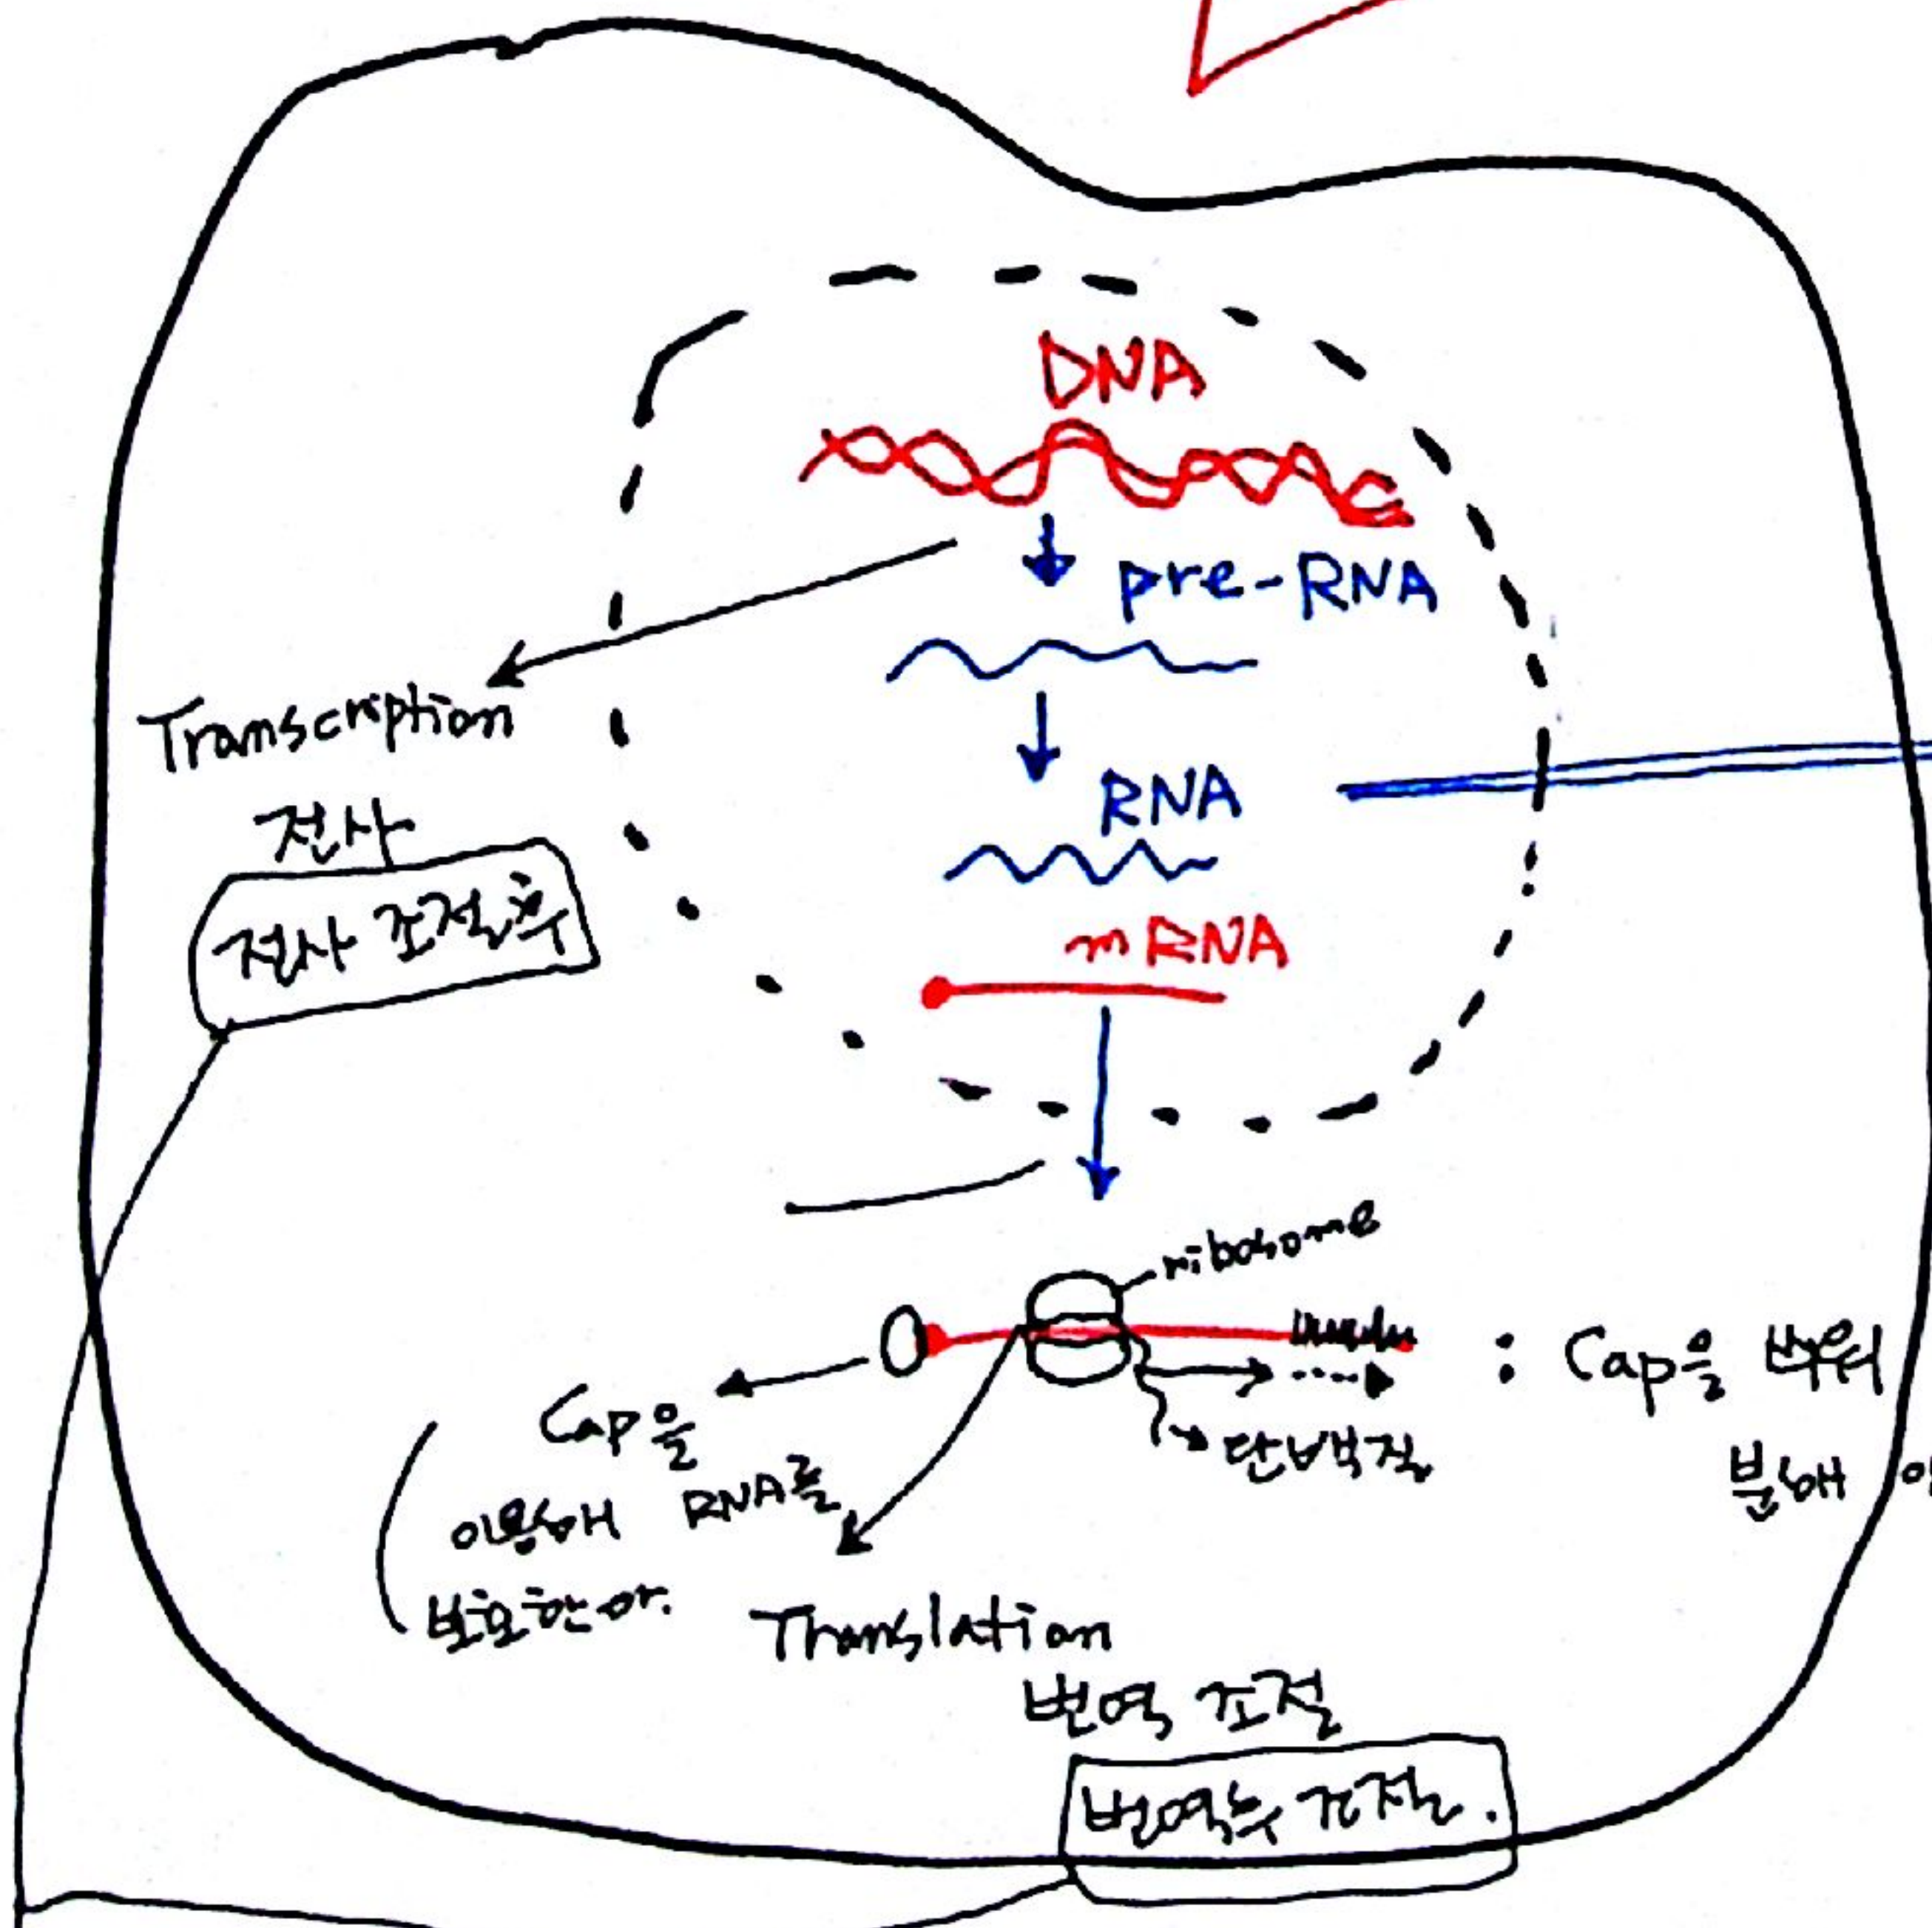 DNA
pre-RNA
Transcription
전사
RNA
전사 조절후
mRNA
ribosome
: Cap을 벗겨
분해
단백질
Cap을
이용해 RNA를
보호한다.
Translation
번역 조절
번역후 조절.